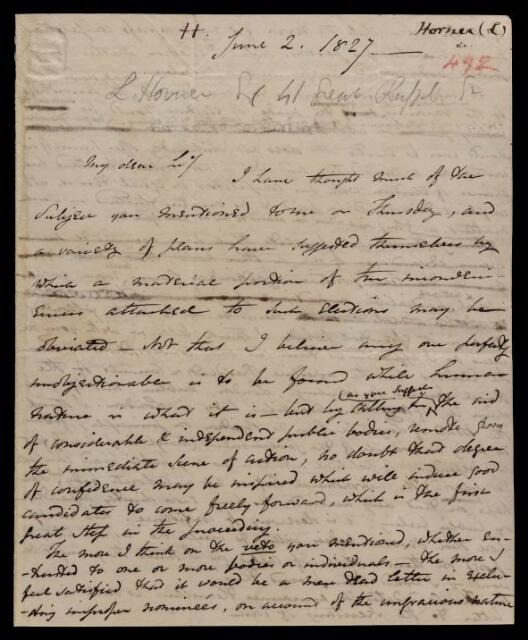 H. June 2. 1827
Horner (L)
L Horner Esq 41 Great Russell St.
My dear Sir/
I have thought much of the
Subject you mentioned to me on Thursday, and
a variety of plans have suggested themselves by
which a material portion of the inconveni
ences attached to such elections may be
obviated – Not that I believe any one perfectly
unobjectionable is to be found while human
nature is what it is – but by calling in (as you suggest) the aid
of considerable & independent public bodies, remote from
the immediate scene of action, no doubt that degree
of confidence may be inspired which will induce good
candidates to come freely forward, which is the first
great step in the proceeding.
The more I think on the veto you mentioned, whether en-
-trusted to one or more bodies or individuals – the more I
feel satisfied that it would be a mere dead letter in exclu-
-ding improper nominees, on account of the ungracious nature